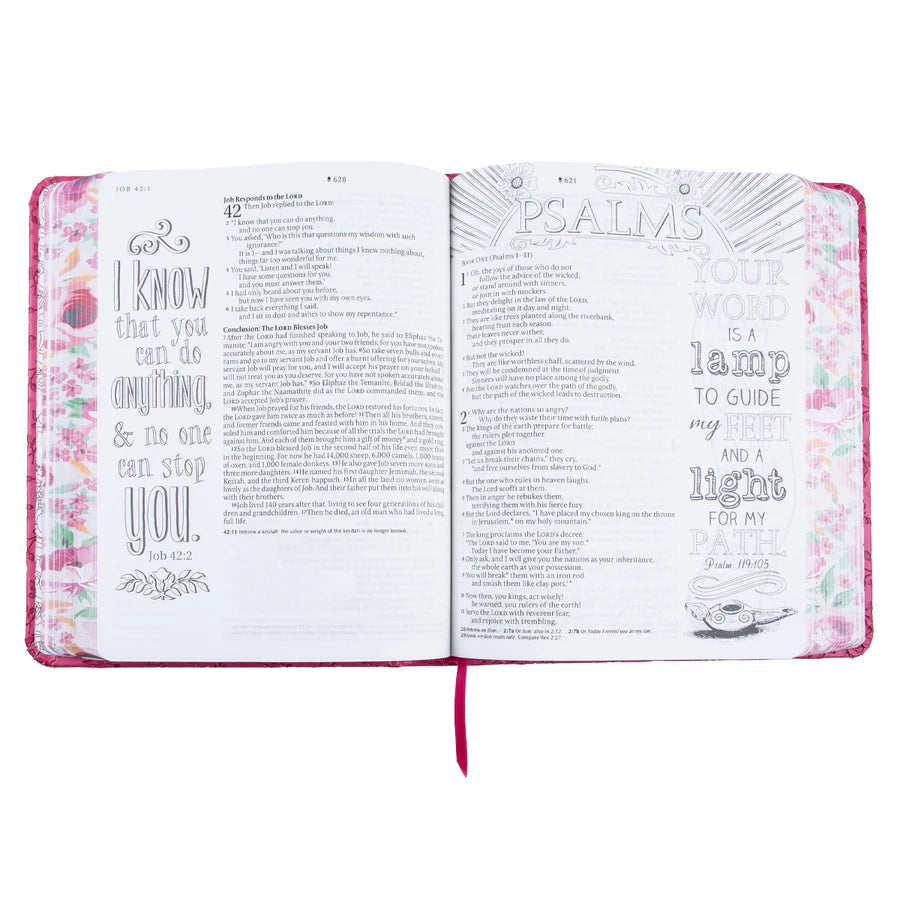 JOB 42:1
620
I KNOW
that you
can do
anything,
& no one
can stop
YOU.
Job 42:2
Job Responds to the LORD
42 Then Job replied to the LORD:
2 "I know that you can do anything,
and no one can stop you.
3 You asked, 'Who is this that questions my wisdom with such
ignorance?'
It is I—and I was talking about things I knew nothing about,
things far too wonderful for me.
4 You said, 'Listen and I will speak!
I have some questions for you,
and you must answer them.'
5 I had only heard about you before,
but now I have seen you with my own eyes.
6 I take back everything I said,
and I sit in dust and ashes to show my repentance."
Conclusion: The LORD Blesses Job
7 After the LORD had finished speaking to Job, he said to Eliphaz the Te-
manite: "I am angry with you and your two friends, for you have not spoken
accurately about me, as my servant Job has. 8 So take seven bulls and seven
rams and go to my servant Job and offer a burnt offering for yourselves. My
servant Job will pray for you, and I will accept his prayer on your behalf. I
will not treat you as you deserve, for you have not spoken accurately about
me, as my servant Job has." 9 So Eliphaz the Temanite, Bildad the Shuhite,
and Zophar the Naamathite did as the LORD commanded them, and the
LORD accepted Job's prayer.
10 When Job prayed for his friends, the LORD restored his fortunes. In fact,
the LORD gave him twice as much as before! 11 Then all his brothers, sisters,
and former friends came and feasted with him in his home. And they con-
soled him and comforted him because of all the trials the LORD had brought
against him. And each of them brought him a gift of money* and a gold ring.
12 So the LORD blessed Job in the second half of his life even more than
in the beginning. For now he had 14,000 sheep, 6,000 camels, 1,000 teams
of oxen, and 1,000 female donkeys. 13 He also gave Job seven more sons and
three more daughters. 14 He named his first daughter Jemimah, the second
Keziah, and the third Keren-happuch. 15 In all the land no women were as
lovely as the daughters of Job. And their father put them into his will along
with their brothers.
16 Job lived 140 years after that, living to see four generations of his chil-
dren and grandchildren. 17 Then he died, an old man who had lived a long,
full life.
42:11 Hebrew a kesitah; the value or weight of the kesitah is no longer known.
621
PSALMS
BOOK ONE (Psalms 1–41)
1 Oh, the joys of those who do not
follow the advice of the wicked,
or stand around with sinners,
or join in with mockers.
2 But they delight in the law of the LORD,
meditating on it day and night.
3 They are like trees planted along the riverbank,
bearing fruit each season.
Their leaves never wither,
and they prosper in all they do.
4 But not the wicked!
They are like worthless chaff, scattered by the wind.
5 They will be condemned at the time of judgment.
Sinners will have no place among the godly.
6 For the LORD watches over the path of the godly,
but the path of the wicked leads to destruction.
2 Why are the nations so angry?
Why do they waste their time with futile plans?
2 The kings of the earth prepare for battle;
the rulers plot together
against the LORD
and against his anointed one.
3 "Let us break their chains," they cry,
"and free ourselves from slavery to God."
4 But the one who rules in heaven laughs.
The Lord scoffs at them.
5 Then in anger he rebukes them,
terrifying them with his fierce fury.
6 For the Lord declares, "I have placed my chosen king on the throne
in Jerusalem,* on my holy mountain."
7 The king proclaims the LORD's decree:
"The LORD said to me, 'You are my son.*
Today I have become your Father.*
8 Only ask, and I will give you the nations as your inheritance,
the whole earth as your possession.
9 You will break* them with an iron rod
and smash them like clay pots.'"
10 Now then, you kings, act wisely!
Be warned, you rulers of the earth!
11 Serve the LORD with reverent fear,
and rejoice with trembling.
2:6 Hebrew on Zion. 2:7a Or Son; also in 2:12. 2:7b Or Today I reveal you as my son.
2:9 Greek version reads rule. Compare Rev 2:27.
YOUR
WORD
IS A
lamp
TO GUIDE
my FEET
AND A
light
FOR MY
PATH.
Psalm 119:105